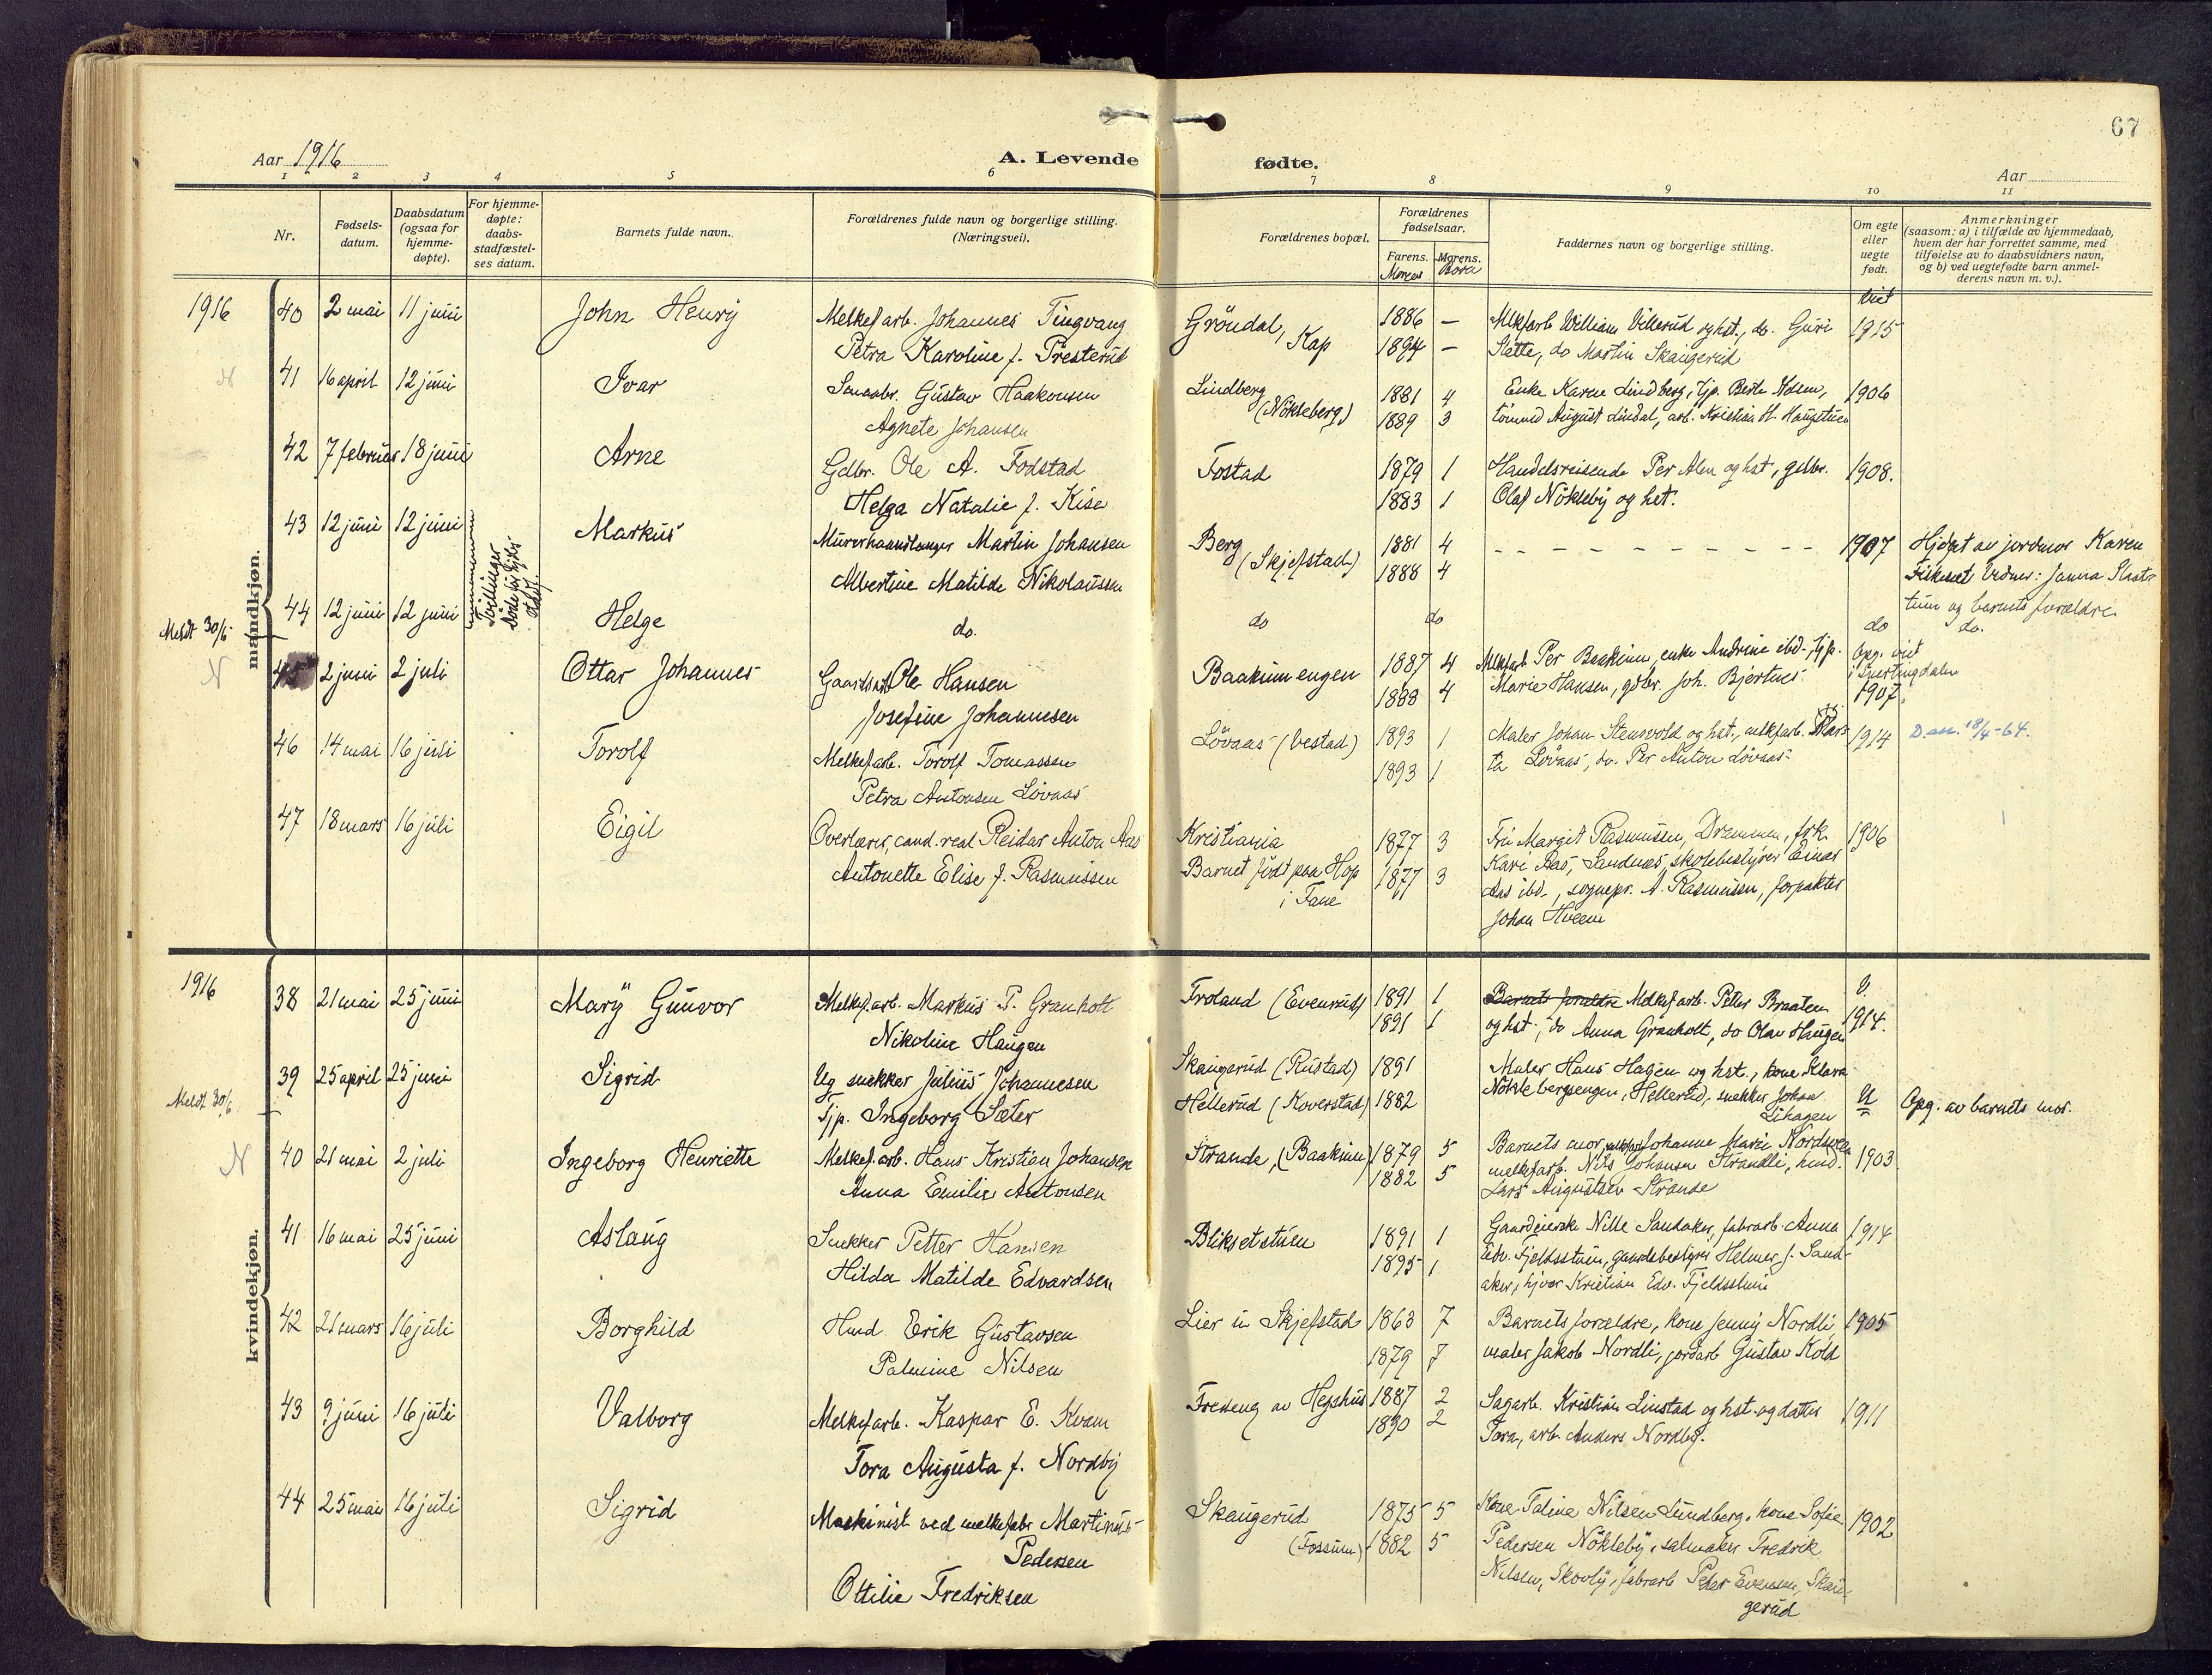 67
Aar 1916
A. Levende fødte.
Aar
1 2 3 4 5 6 7 8 9 10 11
Nr.
Fødsels-
datum.
Daabsdatum
(ogsaa for
hjemme-
døpte).
For hjemme-
døpte:
daabs-
stadfæstel-
ses datum.
Barnets fulde navn.
Forældrenes fulde navn og borgerlige stilling.
(Næringsvei).
Forældrenes bopæl.
Forældrenes
fødselsaar.
Farens. Morens.
Faddernes navn og borgerlige stilling.
Om egte
eller
uegte
født.
Anmerkninger
(saasom: a) i tilfælde av hjemmedaab,
hvem der har forrettet samme, med
tilføielse av to daabsvidners navn,
og b) ved uegtefødte barn anmel-
derens navn m. v.).
mandkjøn.
1916 40 2 mai 11 juni John Henry Melkefarb. Johannes Tingvang Grøndal, Kap 1886 – Mlkfarb William Villerud og hst., do. Guri viet 1915
Petra Karoline f. Presterud 1894 – Slette, do Martin Skaugerud
41 16 april 12 juni Ivar Smaabr. Gustav Haakonsen Lindberg (Nøkleberg) 1881 4 Enke Karne Lindberg, tjp. Berte Nilsen, 1906
Agnete Johansen 1889 3 tømmd August Lindal, arb. Kristian H. Haugstuen
42 7 februar 18 juni Arne Gdbr. Ole A. Fodstad Fostad 1879 1 Handelsreisende Per Alm og hst, gdbr. 1908.
Helga Natalie f. Kise 1883 1 Olaf Nøkleby og hst.
43 12 juni 12 juni Tvillinger Markus Murerhaandlanger Martin Johansen Berg (Skjefstad) 1881 4 1907 Hjdpt av jordmor Karen
Albertine Matilde Nikolaussen 1888 4 Fiskeset Vidner: Janna Slaat-
tum og barnets forældre
Meldt 30/6 44 12 juni 12 juni Helge do. do do do do.
N 45 2 juni 2 juli Ottar Johannes Gaardsarb Ole Hansen Baakinn engen 1887 4 Mlkfarb Per Baakinn, enke Andrine ibd., tjp. Opg. viet
Josefine Johannesen 1888 4 Marie Hansen, gdbr. Joh. Bjertnes i Snertingdalen
1907.
46 14 mai 16 juli Torolf Melkefarb. Torolf Tomassen Løvaas (Vestad) 1893 1 Maler Johan Stensvold og hst., melkfarb. Mar- 1914 D. 18/4-64.
Petra Antonsen Løvaas 1893 1 ta Løvaas, do. Per Anton Løvaas
47 18 mars 16 juli Eigil Overlærer, cand. real Reidar Anton Aas Kristiania 1877 3 Fru Margit Rasmussen, Drammen, frk. 1906
Antonette Elise f. Rasmussen Barnet født paa Hop 1877 3 Kari Aas, Sandnes, skolebestyrer Einar
i Fane Aas ibd., sognepr. A. Rasmussen, forpakter
Johan Hveem
kvindekjøn.
1916 38 21 mai 25 juni Mary Gunvor Melkef.arb. Markus P. Granholt Froland (Evenrud) 1891 1 Barnets forældre Melkefarb. Peter Braaten V.
Nikoline Haugen 1891 1 og hst., do Anna Granholt, do Olav Haugen 1914.
39 25 april 25 juni Sigrid Ug. snekker Julius Johannesen Skaugerud (Rustad) 1891 Maler Hans Hagen og hst., kone Klara
Meldt 30/6 Tjp. Ingeborg Sæter Hellerud (Koverstad) 1882 Nøklebergsengen, Hellerud, snekker Johan U Opg. av barnets mor.
Lihagen
N 40 21 mai 2 juli Ingeborg Henriette Melkef.arb. Hans Kristian Johansen Strande, (Baakinn) 1879 5 Barnets mor, Johanne Marie Nordsveen 1903
Anna Emilie Antonsen 1882 5 melkefarb. Nils Johansen Strandli, husd.
Lars Augustsen Strande
41 16 mai 25 juni Aslaug Snekker Petter Hansen Bliksetstuen 1891 1 Gaardeierske Nille Sandaker, fabrarb. Anna 1914
Hilda Matilde Edvardsen 1895 1 Edv. Fjeldsstuen, gaardsbestyrer Helmer J. Sand-
aker, Kristian Edv. Fjeldsstuen
42 21 mars 16 juli Borghild Husd Erik Gustavsen Lier u Skjefstad 1863 7 Barnets forældre, kone Jenny Nordli, 1905
Palmine Nilsen 1879 7 maler Jakob Nordli, jordarb Gustav Kold
43 9 juni 16 juli Valborg Melkefarb. Kaspar E. Kvam Fredeng av Hegshus 1887 2 Sagarb. Kristian Linstad og hst. og datter 1911
Tora Augusta f. Nordby 1890 2 Tora, arb. Anders Nordby.
44 25 mai 16 juli Sigrid Maskinist ved melkefabr Martinus Skaugerud 1875 5 Kone Taline Nilsen Lundberg, kone Sofie 1902
Pedersen (Fossum) 1882 5 Pedersen Nøkleby, salmaker Fredrik
Ottilie Fredriksen Nilsen, Skovly, fabrarb Peder Evensen, Skau-
gerud